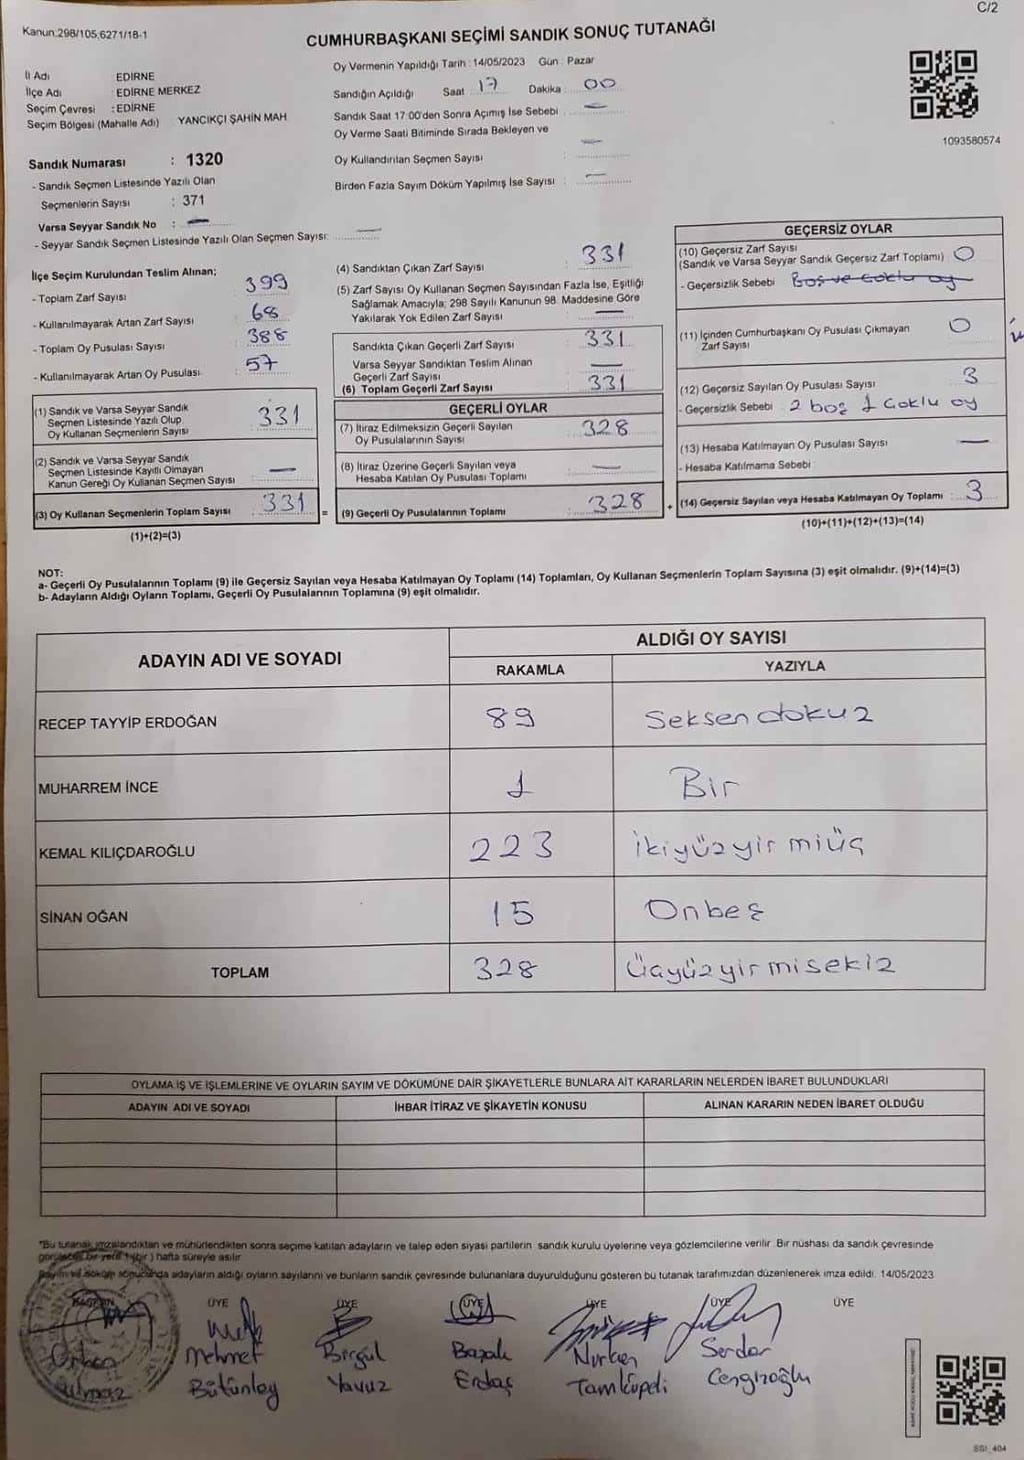 C/2
Kanun:298/105;6271/18-1
CUMHURBAŞKANI SEÇİMİ SANDIK SONUÇ TUTANAĞI
İl Adı EDİRNE
İlçe Adı : EDİRNE MERKEZ
Seçim Çevresi : EDİRNE
Seçim Bölgesi (Mahalle Adı) YANCIKÇI ŞAHİN MAH
Sandık Numarası : 1320
- Sandık Seçmen Listesinde Yazılı Olan
Seçmenlerin Sayısı : 371
Varsa Seyyar Sandık No : —
- Seyyar Sandık Seçmen Listesinde Yazılı Olan Seçmen Sayısı: —
Oy Vermenin Yapıldığı Tarih : 14/05/2023 Gün : Pazar
Sandığın Açıldığı Saat 17 Dakika 00
Sandık Saat 17:00'den Sonra Açımış İse Sebebi : —
Oy Verme Saati Bitiminde Sırada Bekleyen ve
Oy Kullandırılan Seçmen Sayısı : —
Birden Fazla Sayım Döküm Yapılmış İse Sayısı : —
1093580574
İlçe Seçim Kurulundan Teslim Alınan;
- Toplam Zarf Sayısı : 399
- Kullanılmayarak Artan Zarf Sayısı : 68
- Toplam Oy Pusulası Sayısı : 388
- Kullanılmayarak Artan Oy Pusulası : 57
(1) Sandık ve Varsa Seyyar Sandık
Seçmen Listesinde Yazılı Olup
Oy Kullanan Seçmenlerin Sayısı : 331
(2) Sandık ve Varsa Seyyar Sandık
Seçmen Listesinde Kayıtlı Olmayan
Kanun Gereği Oy Kullanan Seçmen Sayısı —
(3) Oy Kullanan Seçmenlerin Toplam Sayısı : 331 =
(1)+(2)=(3)
(4) Sandıktan Çıkan Zarf Sayısı : 331
(5) Zarf Sayısı Oy Kullanan Seçmen Sayısından Fazla İse, Eşitliği
Sağlamak Amacıyla; 298 Sayılı Kanunun 98. Maddesine Göre
Yakılarak Yok Edilen Zarf Sayısı : —
Sandıkta Çıkan Geçerli Zarf Sayısı : 331
Varsa Seyyar Sandıktan Teslim Alınan
Geçerli Zarf Sayısı : —
(6) Toplam Geçerli Zarf Sayısı : 331
GEÇERLİ OYLAR
(7) İtiraz Edilmeksizin Geçerli Sayılan
Oy Pusulalarının Sayısı : 328
(8) İtiraz Üzerine Geçerli Sayılan veya
Hesaba Katılan Oy Pusulası Toplamı : —
(9) Geçerli Oy Pusulalarının Toplamı : 328 +
GEÇERSİZ OYLAR
(10) Geçersiz Zarf Sayısı
(Sandık ve Varsa Seyyar Sandık Geçersiz Zarf Toplamı) : 0
- Geçersizlik Sebebi : Boş ve Çoklu oy
(11) İçinden Cumhurbaşkanı Oy Pusulası Çıkmayan
Zarf Sayısı : 0
(12) Geçersiz Sayılan Oy Pusulası Sayısı : 3
- Geçersizlik Sebebi : 2 boş 1 Çoklu oy
(13) Hesaba Katılmayan Oy Pusulası Sayısı : —
- Hesaba Katılmama Sebebi
(14) Geçersiz Sayılan veya Hesaba Katılmayan Oy Toplamı : 3
(10)+(11)+(12)+(13)=(14)
NOT:
a- Geçerli Oy Pusulalarının Toplamı (9) ile Geçersiz Sayılan veya Hesaba Katılmayan Oy Toplamı (14) Toplamları, Oy Kullanan Seçmenlerin Toplam Sayısına (3) eşit olmalıdır. (9)+(14)=(3)
b- Adayların Aldığı Oyların Toplamı, Geçerli Oy Pusulalarının Toplamına (9) eşit olmalıdır.
ADAYIN ADI VE SOYADI ALDIĞI OY SAYISI
RAKAMLA YAZIYLA
RECEP TAYYİP ERDOĞAN 89 Seksendokuz
MUHARREM İNCE 1 Bir
KEMAL KILIÇDAROĞLU 223 ikiyüzyirmiüç
SİNAN OĞAN 15 Onbeş
TOPLAM 328 Üçyüzyirmisekiz
OYLAMA İŞ VE İŞLEMLERİNE VE OYLARIN SAYIM VE DÖKÜMÜNE DAİR ŞİKAYETLERLE BUNLARA AİT KARARLARIN NELERDEN İBARET BULUNDUKLARI
ADAYIN ADI VE SOYADI İHBAR İTİRAZ VE ŞİKAYETİN KONUSU ALINAN KARARIN NEDEN İBARET OLDUĞU
*Bu tutanak imzalandıktan ve mühürlendikten sonra seçime katılan adayların ve talep eden siyasi partilerin sandık kurulu üyelerine veya gözlemcilerine verilir. Bir nüshası da sandık çevresinde
görülecek bir yere 1 (bir) hafta süreyle asılır
Sayım ve döküm sonucunda adayların aldığı oyların sayılarını ve bunların sandık çevresinde bulunanlara duyurulduğunu gösteren bu tutanak tarafımızdan düzenlenerek imza edildi. 14/05/2023
BAŞKAN ÜYE ÜYE ÜYE ÜYE ÜYE ÜYE
Orhan Mehmet Birgül Başak Nurken Serdar
Yılmaz Bütünlay Yavuz Erdaş Tamküpeli Cengizoğlu
SSI_404